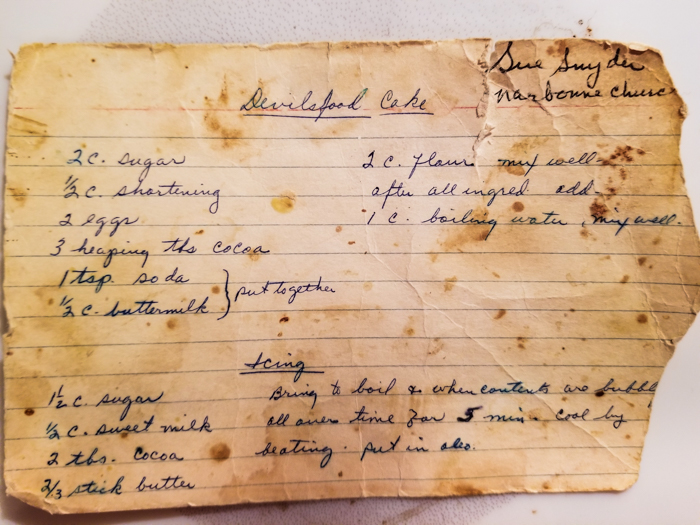 Sue Snyder
Narbonne Churc
Devilsfood Cake
2 c. sugar
1/2 c. shortening
2 eggs
3 heaping tbs cocoa
1 tsp. soda
1/2 c. buttermilk } put together
2 c. flour mix well
after all ingred add
1 c. boiling water, mix well.
Icing
1 1/2 c. sugar
1/2 c. sweet milk
2 tbs. cocoa
2/3 stick butter
Bring to boil & when contents are bubbl
all over time for 5 min. cool by
beating. put in also.